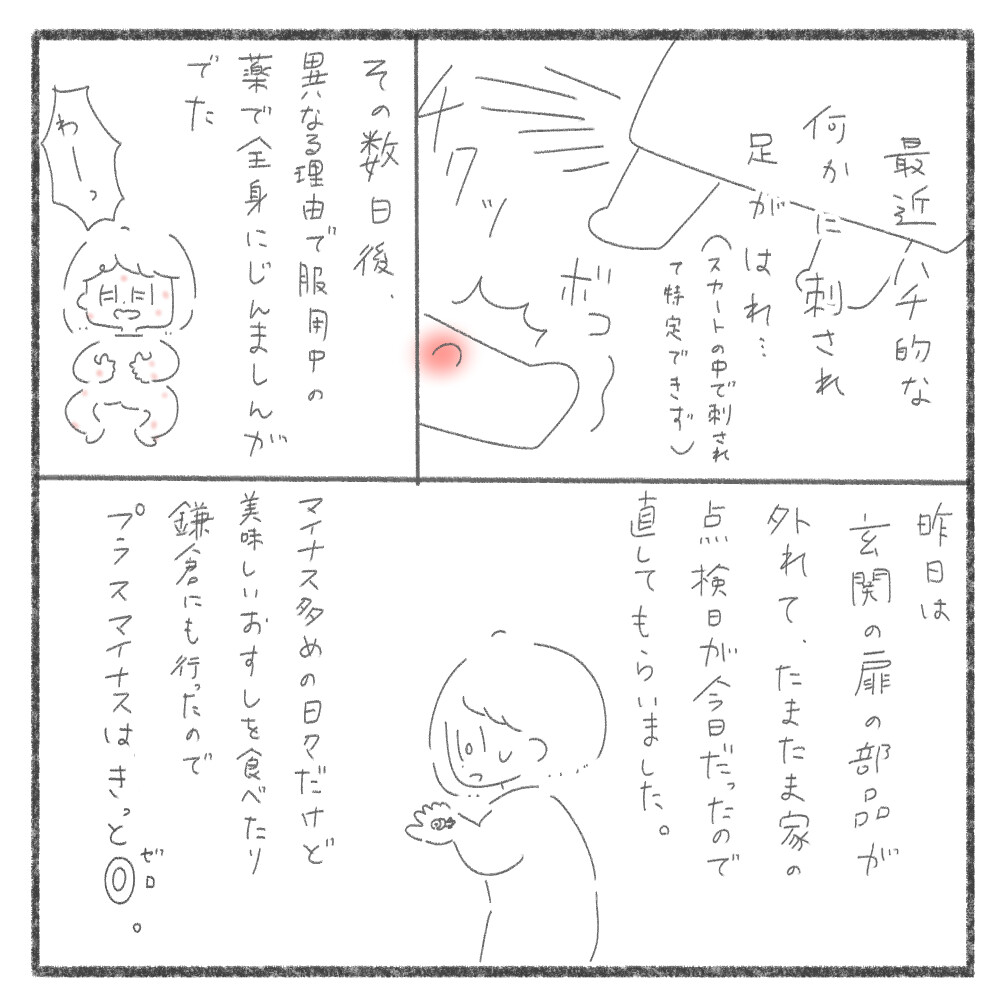 最近ハチ的な
何かに刺され
足が
はれ…
(スカートの中で刺され
て特定できず)
チクッ
ボコっ
その数日後、
異なる理由で服用中の
薬で全身にじんましんが
でた
わーっ
昨日は
玄関の扉の部品が
外れて、たまたま家の
点検日が今日だったので
直してもらいました。
マイナス多めの日々だけど
美味しいおすしを食べたり
鎌倉にも行ったので
プラスマイナスはきっと0。
ゼロ